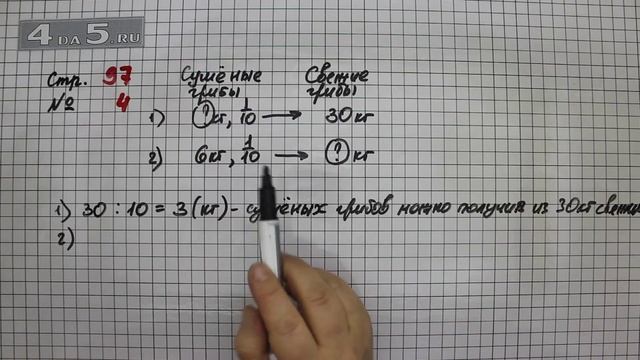 4DA5.RU
Стр. 97 Сушёные грибы Свежие грибы
№ 4
1) ? кг, 1/10 → 30 кг
2) 6 кг, 1/10 → ? кг
1) 30 : 10 = 3 (кг) - сушёных грибов можно получить из 30 кг свежи
2)